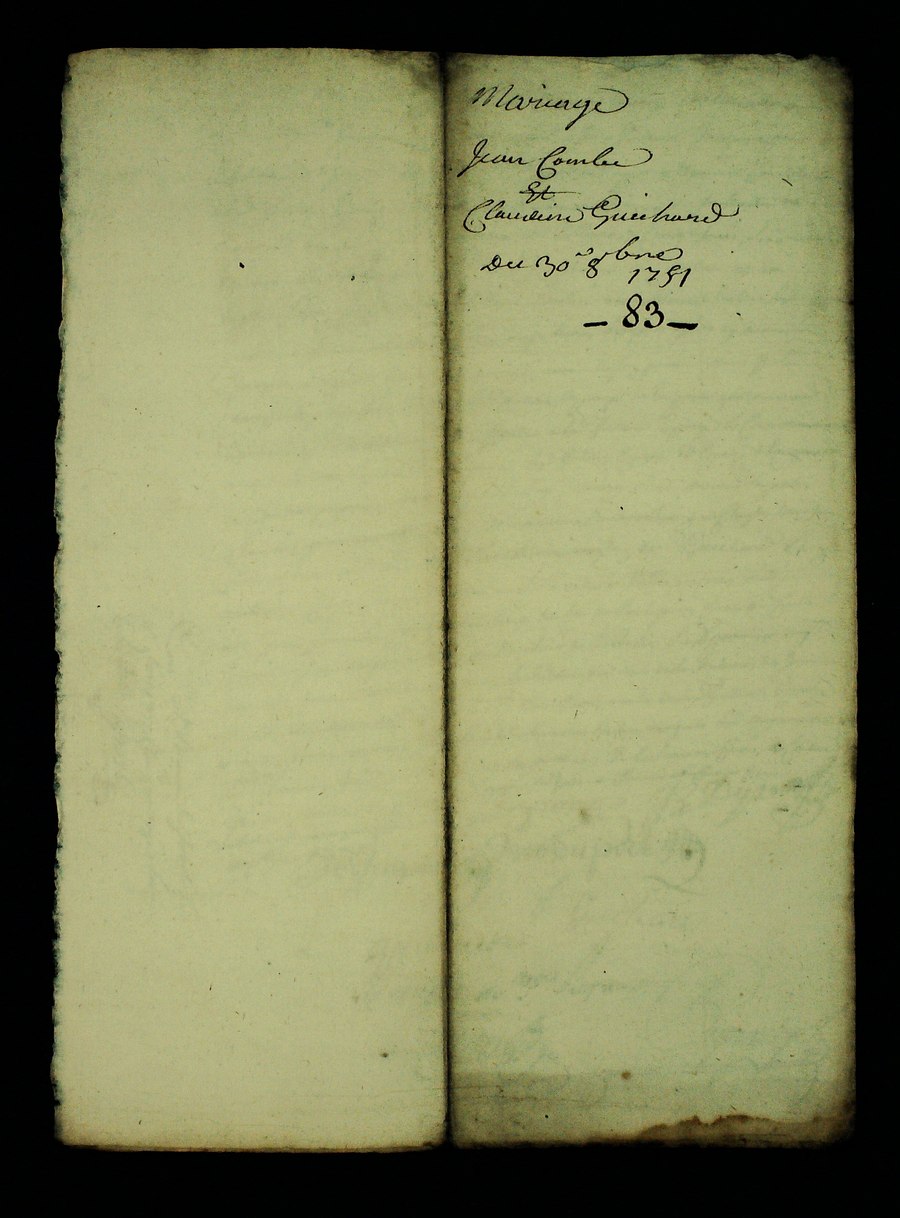 Mariage
Jean Combe
Et
Claudine Guichard
Du 30e 8bre
1751
- 83 -